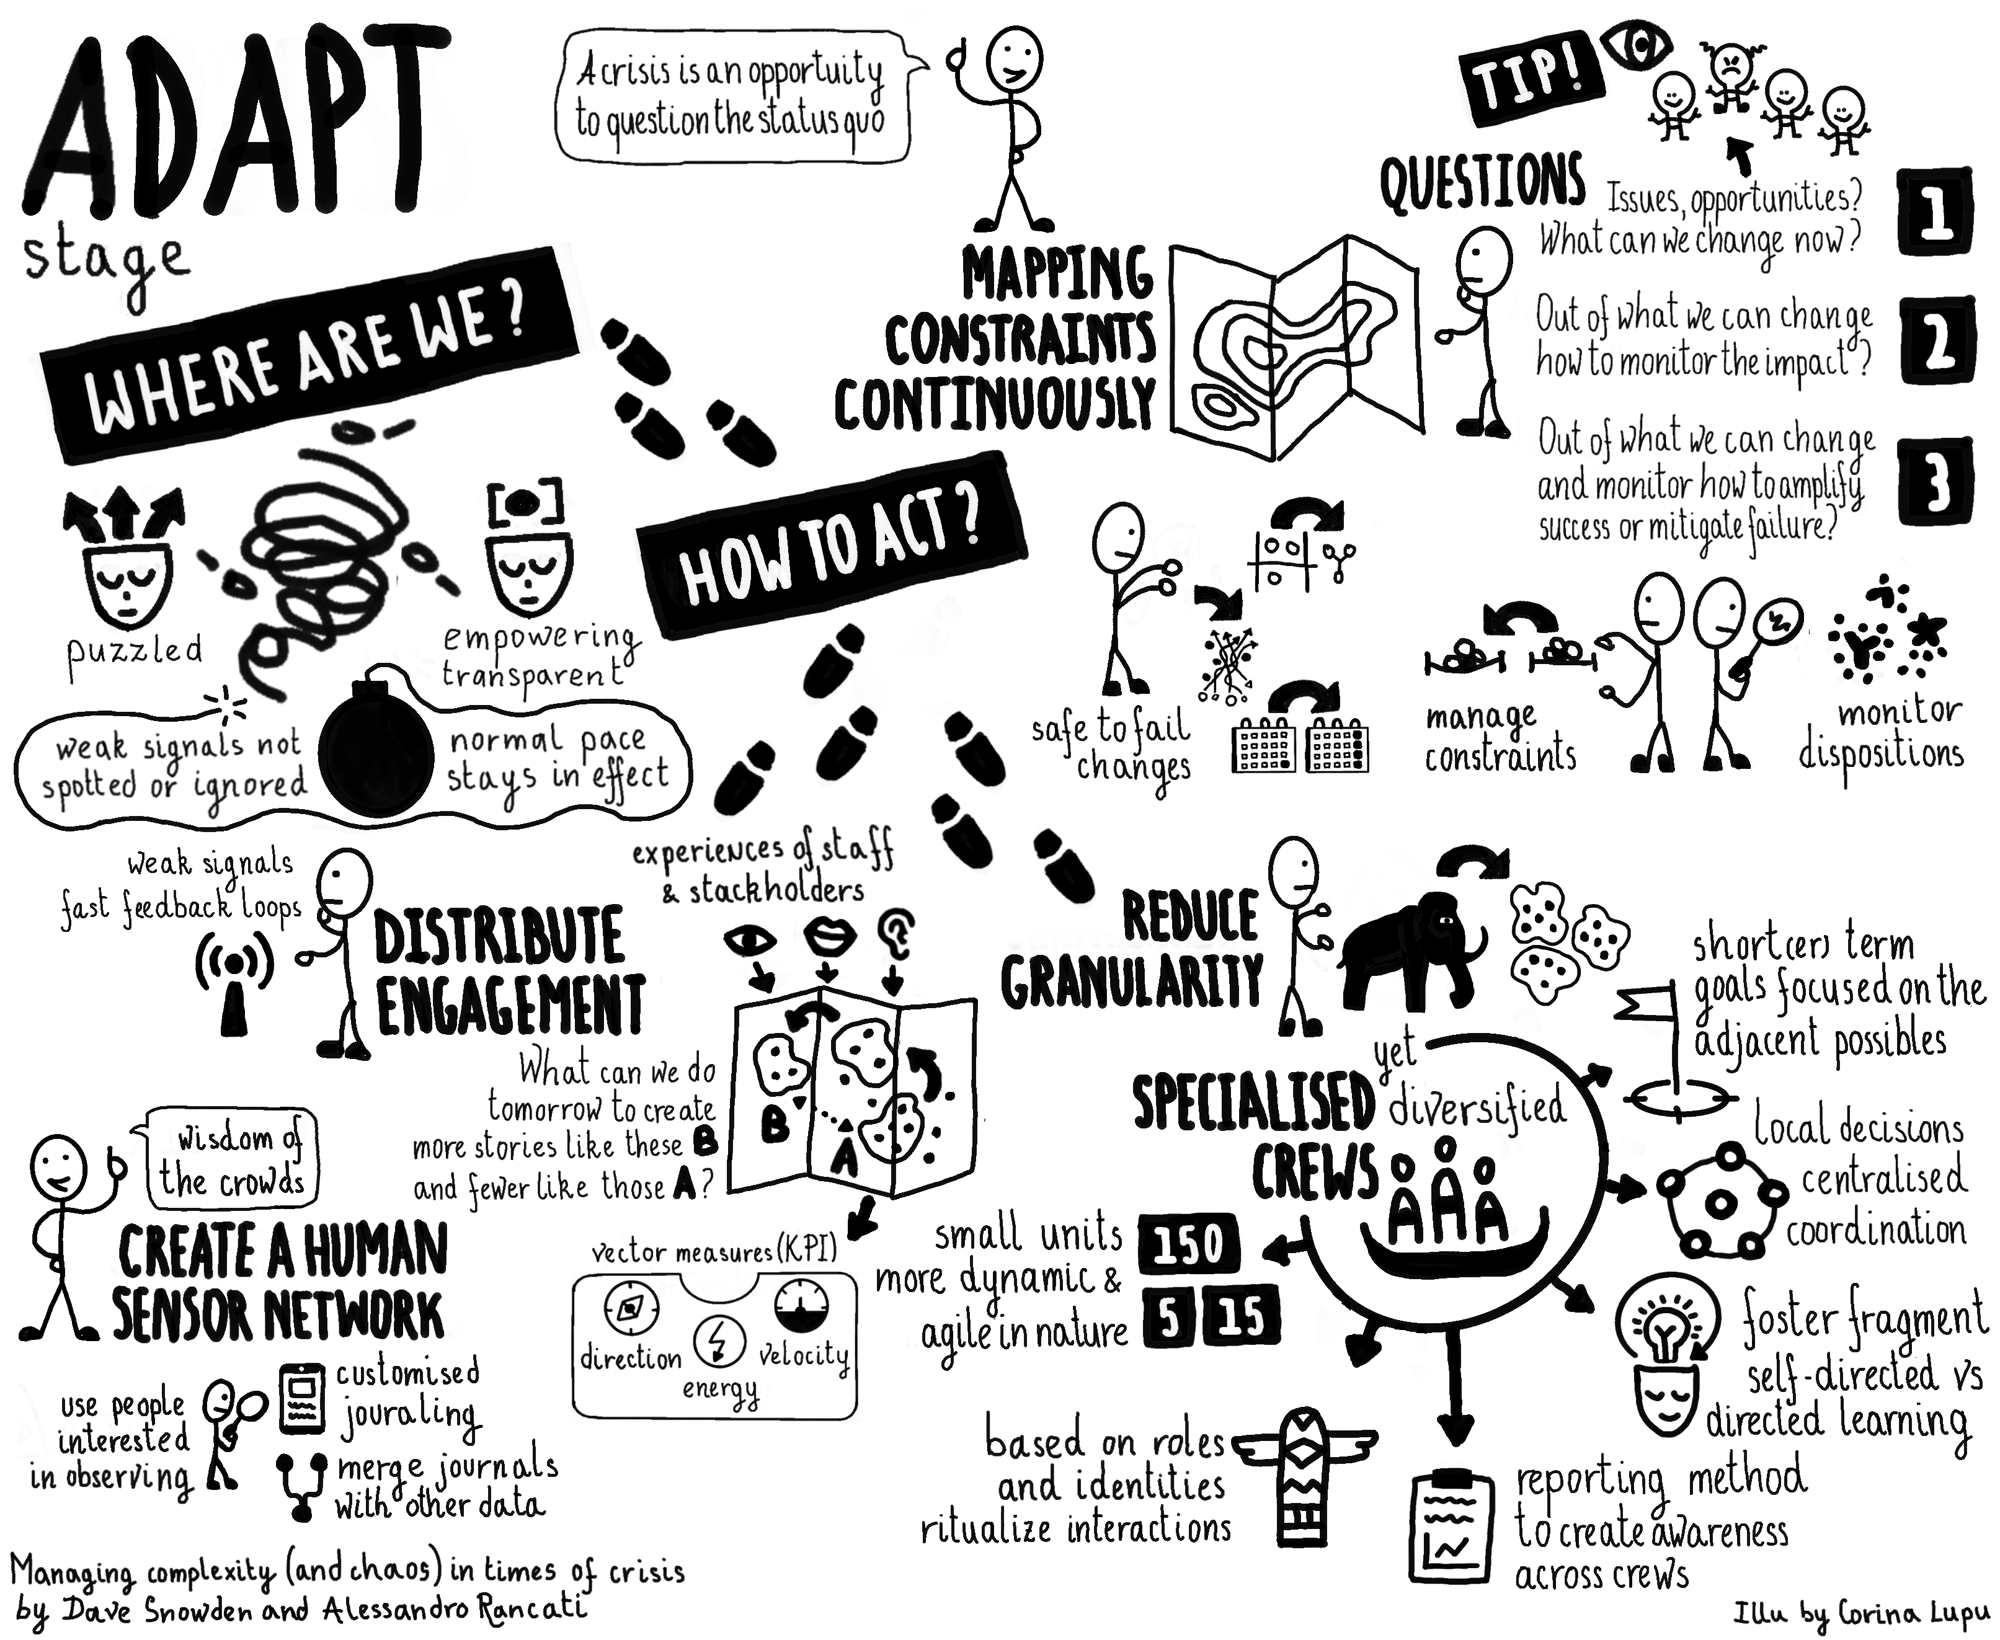 ADAPT
stage
A crisis is an opportuity
to question the status quo
TIP!
WHERE ARE WE?
puzzled
empowering
transparent
weak signals not
spotted or ignored
normal pace
stays in effect
HOW TO ACT?
MAPPING
CONSTRAINTS
CONTINUOUSLY
QUESTIONS
Issues, opportunities?
What can we change now?
1
Out of what we can change
how to monitor the impact?
2
Out of what we can change
and monitor how to amplify
success or mitigate failure?
3
safe to fail
changes
manage
constraints
monitor
dispositions
weak signals
fast feedback loops
DISTRIBUTE
ENGAGEMENT
experiences of staff
& stackholders
What can we do
tomorrow to create
more stories like these B
and fewer like those A?
B
A
vector measures (KPI)
direction
energy
velocity
wisdom of
the crowds
CREATE A HUMAN
SENSOR NETWORK
use people
interested
in observing
customised
jouraling
merge journals
with other data
REDUCE
GRANULARITY
yet
SPECIALISED diversified
CREWS
short(er) term
goals focused on the
adjacent possibles
local decisions
centralised
coordination
foster fragment
self-directed vs
directed learning
reporting method
to create awareness
across crews
based on roles
and identities
ritualize interactions
small units
more dynamic &
agile in nature
150
5 15
Managing complexity (and chaos) in times of crisis
by Dave Snowden and Alessandro Rancati
Illu by Corina Lupu